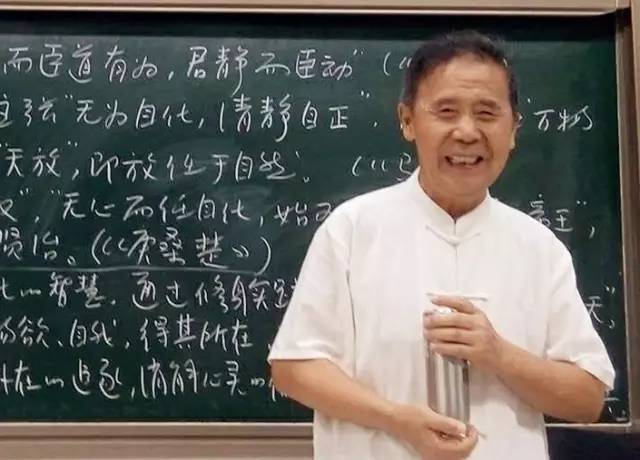 而臣道有为,君静而臣动”(《
主张“无为自化,清静自正”. “万物
“天放”,即放任于自然. (《马
“无心而任自化, 帝王”,
贤治。(《庚桑楚》)
智慧. 通过修身实
物欲、自我, 得其所在, 天”,
外在的追逐,消解心灵的